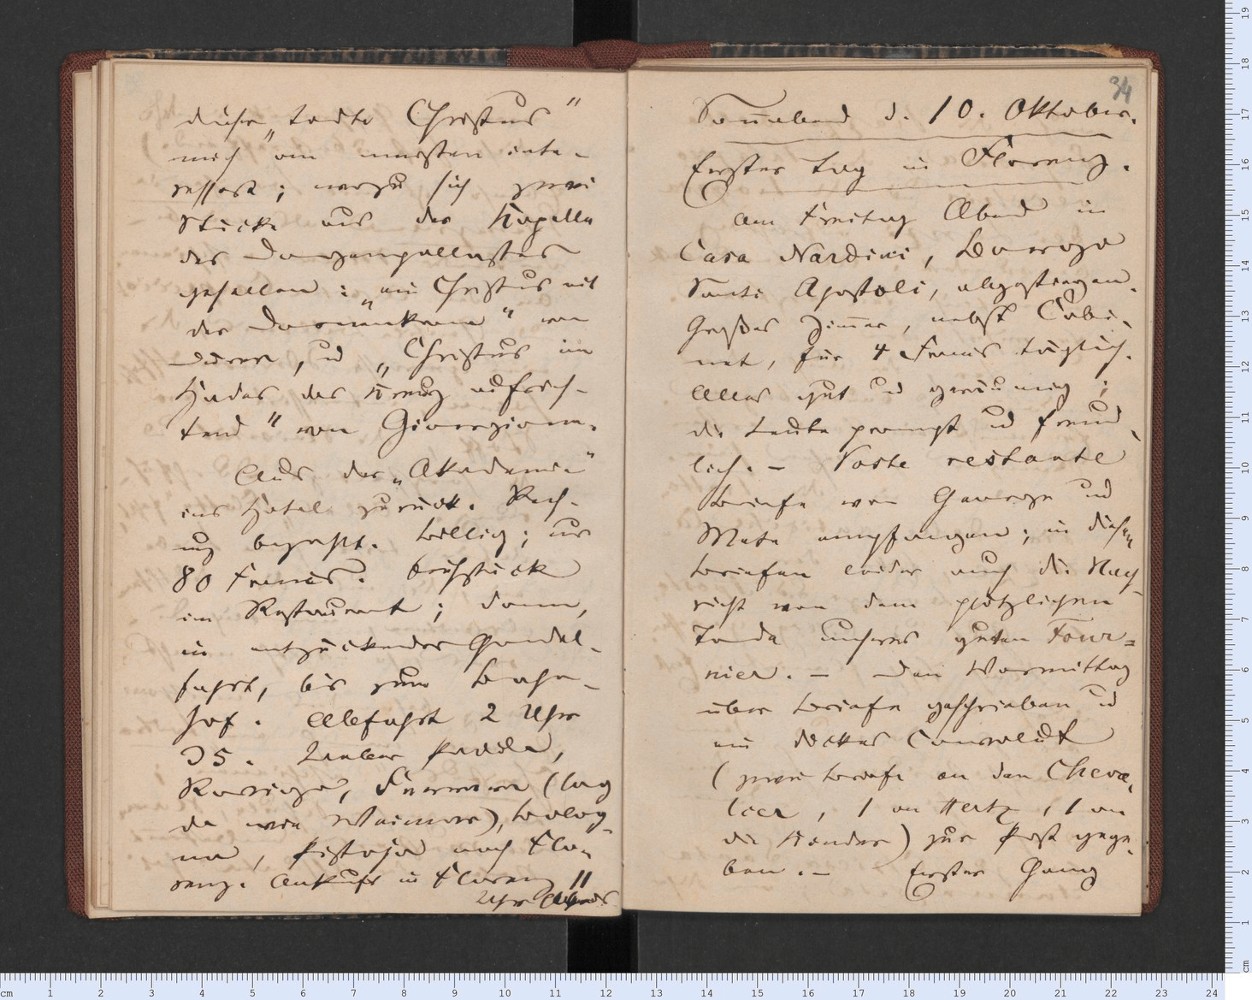 dieser „todte Christus"
mich am meisten inte-
ressirt; wozu sich zwei
Stücke aus der Kapelle
des Dogenpallastes
gesellen: „ein Christus mit
der Dornenkrone" von
Dürer, und „Christus im
Hades das Kreuz aufrich-
tend" von Giorgione.
Aus der „Akademie"
ins Hotel zurück. Rech-
nung bezahlt. Billig; nur
80 Francs. Frühstück
im Restaurant; dann,
in entzückender Gondel-
fahrt, bis zum Bahn-
hof. Abfahrt 2 Uhr
35. Ueber Padua,
Rovigo, Ferrara (lag
da wie Weimar), Bolog-
na, Pistoja nach Flo-
renz. Ankunft in Florenz 11
Uhr Abends.
34
Sonnabend d. 10. Oktober.
Erster Tag in Florenz.
Am Freitag Abend in
Casa Nardini, Borgo
Santi Apostoli, abgestiegen.
Großes Zimmer, nebst Cabi-
net, für 4 Francs täglich.
Alles gut und geräumig;
die Leute prompt und freund-
lich. – Poste restante
Briefe von George und
Mete empfangen; in diesen
Briefen leider auch die Nach-
richt von dem plötzlichen
Tode unseres guten Four-
nier. – Den Vormittag
über Briefe geschrieben und
ein dickes Convolut
(zwei Briefe an den Cheva-
lier, 1 an Hertz, 1 an
die Kinder) zur Post gege-
ben. – Erster Gang